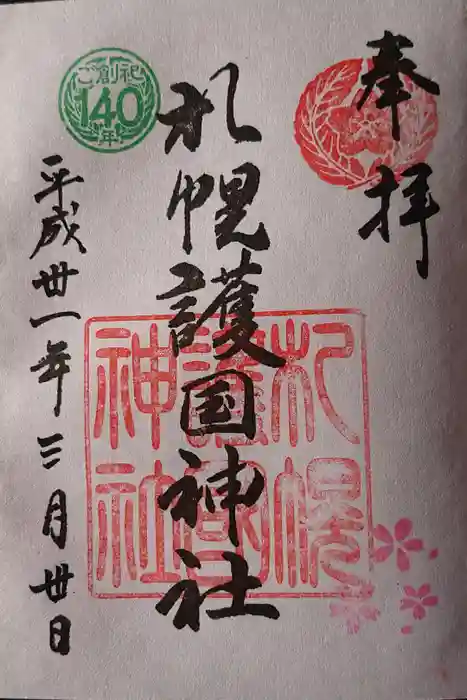 奉拝
札幌護国神社
平成卅一年三月卅日
ご創祀
140
年
札幌
護國
神社